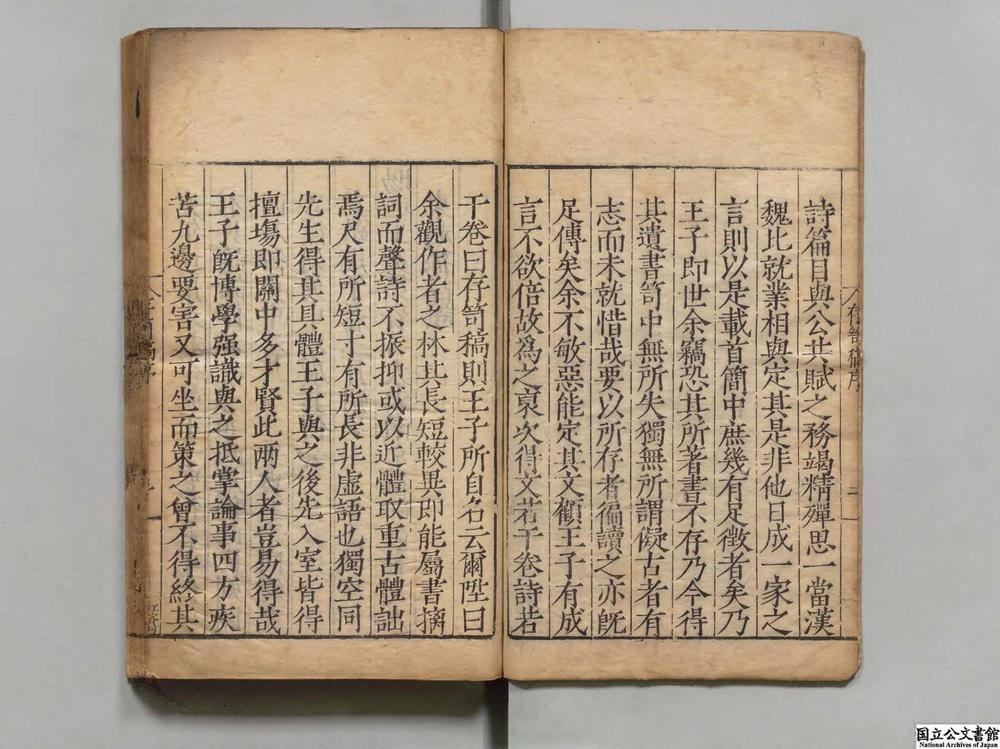 詩篇目與公共賦之務竭精殫思一當漢
魏比就業相與定其是非他日成一家之
言則以是載首簡中庶幾有足徵者矣乃
王子即世余竊恐其所著書不存乃今得
其遺書笥中無所失獨無所謂儗古者有
志而未就惜哉要以所存者徧讀之亦旣
足傳矣余不敏惡能定其文顧王子有成
言不欲倍故爲之裒次得文若干卷詩若
干卷曰存笥稿則王子所自名云爾陞曰
余觀作者之林其長短較異即能屬書摛
詞而聲詩不振抑或以近體取重古體詘
焉尺有所短寸有所長非虛語也獨空同
先生得其具體王子與之後先入室皆得
擅塲即關中多才賢此兩人者豈易得哉
王子旣博學强識與之抵掌論事四方疾
苦九邊要害又可坐而策之曾不得終其
存笥稿序
二
国立公文書館
National Archives of Japan